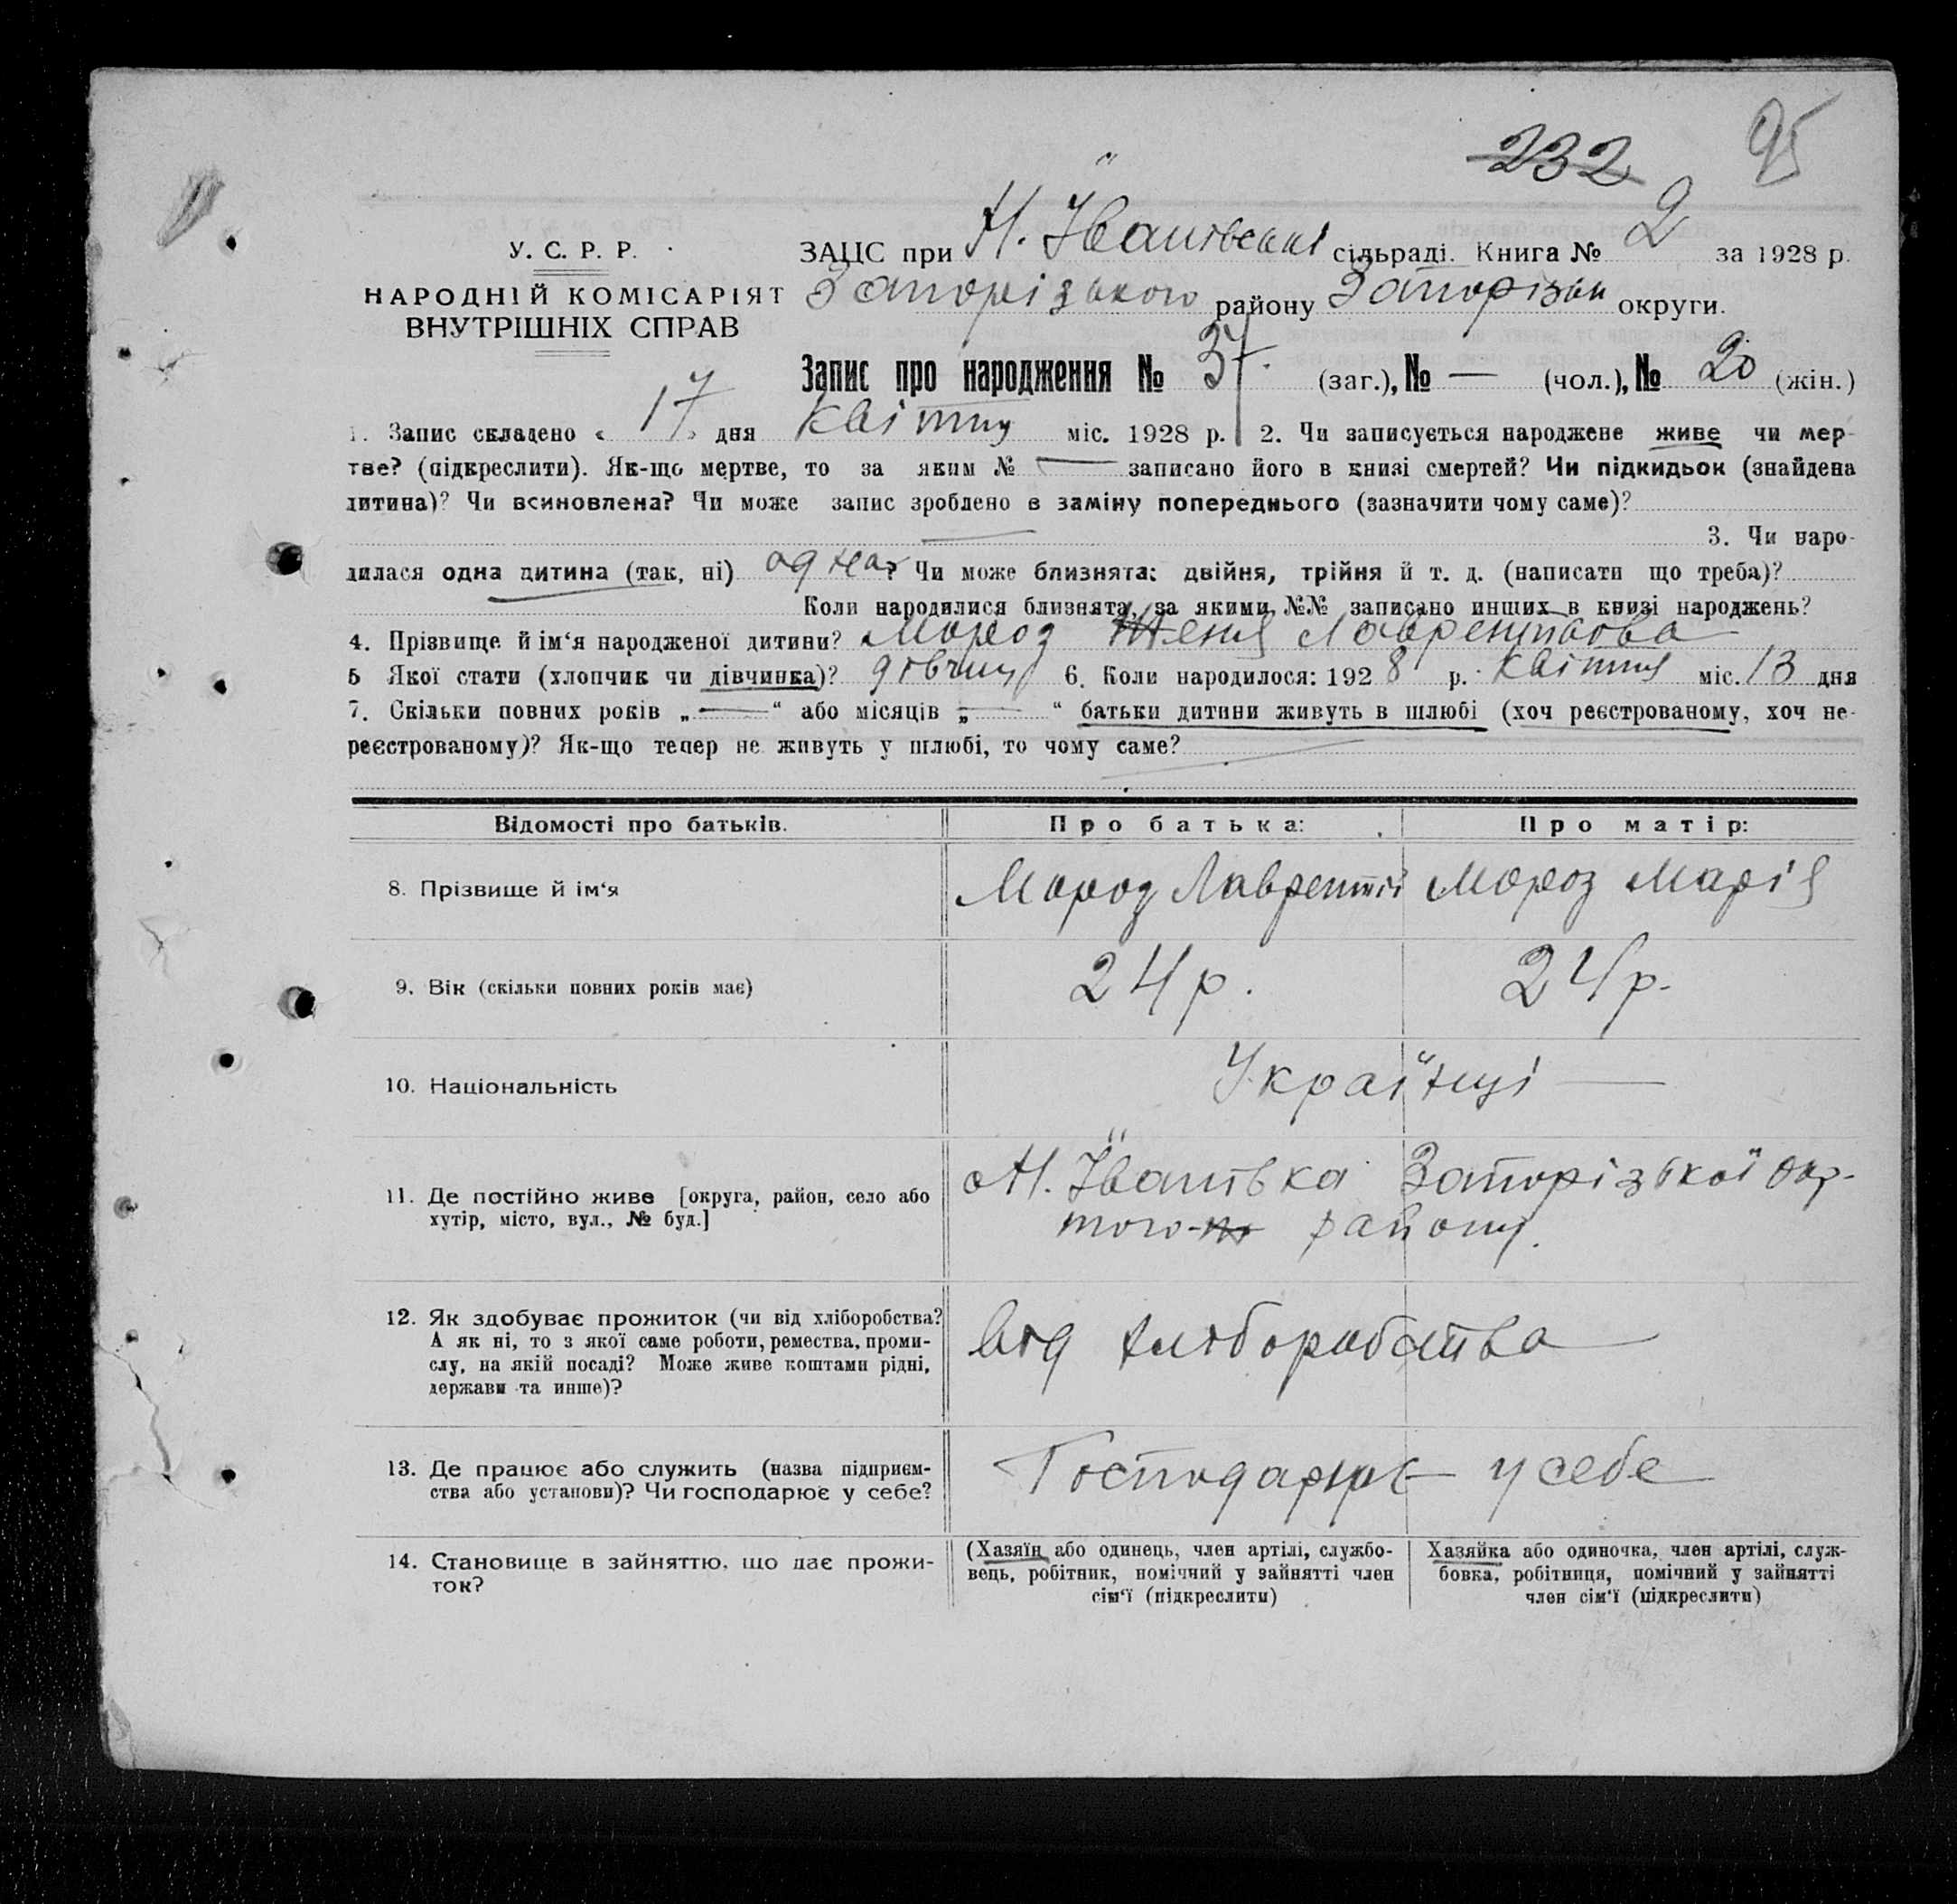 232 95
У. С. Р. Р.
НАРОДНІЙ КОМІСАРІЯТ
ВНУТРІШНІХ СПРАВ
ЗАЦС при Н. Іванівській сільраді. Книга № 2 за 1928 р.
Запорізького району Запорізьк округи.
Запис про народження № 37. (заг.), № — (чол.), № 20 (жін.)
1. Запис складено « 17 » дня квітня міс. 1928 р. 2. Чи записується народжене живе чи мер-
тве? (підкреслити). Як-що мертве, то за яким № — записано його в книзі смертей? Чи підкидьок (знайдена
дитина)? Чи всиновлена? Чи може запис зроблено в заміну попереднього (зазначити чому саме)?
— 3. Чи наро-
дилася одна дитина (так, ні) одна? Чи може близнята: двійня, трійня й т. д. (написати що треба)?
Коли народилися близнята, за якими №№ записано инших в книзі народжень?
4. Прізвище й ім‘я народженої дитини? Мороз Женя Лаврентьєва
5 Якої стати (хлопчик чи дівчинка)? дівчин 6. Коли народилося: 1928 р. квітня міс. 13 дня
7. Скільки повних років „ — “ або місяців „ — “ батьки дитини живуть в шлюбі (хоч реєстрованому, хоч не-
реєстрованому)? Як-що тепер не живуть у шлюбі, то чому саме?
Відомості про батьків. Про батька: Про матір:
8. Прізвище й ім‘я Мороз Лаврентій Мороз Марія
9. Вік (скільки повних років має) 24 р. 24 р.
10. Національність Українці —
11. Де постійно живе [округа, район, село або Н. Іванівка Запорізької окр-
хутір, місто, вул., № буд.] того-ж району.
12. Як здобуває прожиток (чи від хліборобства?
А як ні, то з якої саме роботи, ремества, проми- від хліборобства
слу, на якій посаді? Може живе коштами рідні,
держави та инше)?
13. Де працює або служить (назва підприєм- Господарює у себе
ства або установи)? Чи господарює у себе?
14. Становище в зайняттю, що дає прожи-
ток?
(Хазяїн або одинець, член артілі, службо-
вець, робітник, помічний у зайнятті член
сім‘ї (підкреслити)
Хазяйка або одиночка, член артілі, служ-
бовка, робітниця, помічний у зайнятті
член сім‘ї (підкреслити)